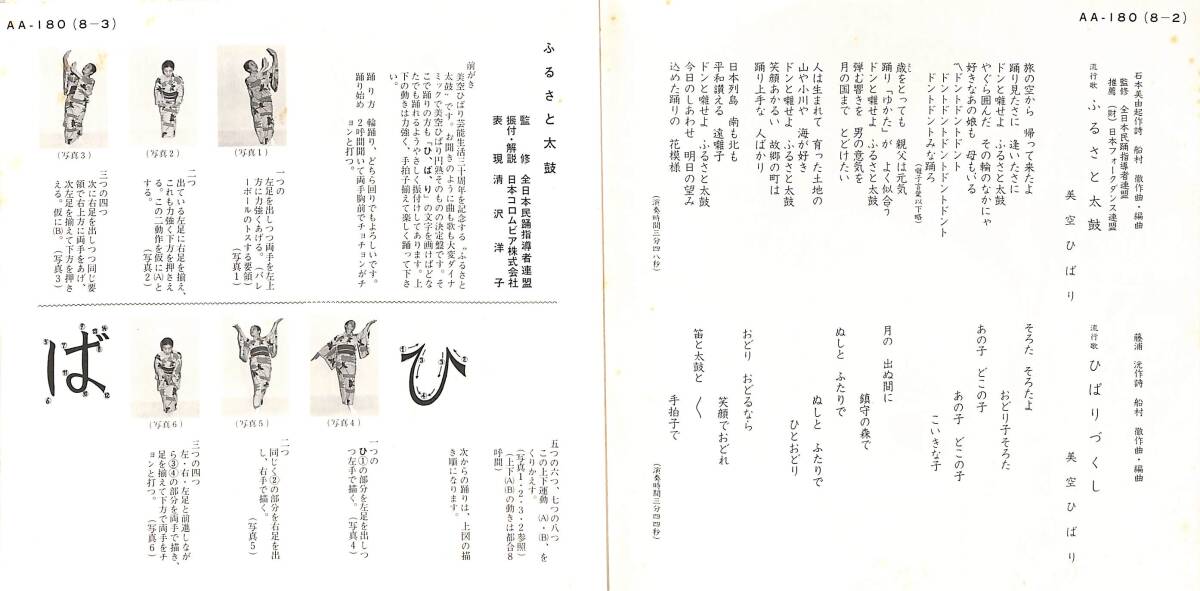 AA-180(8-2)
石本美由起作詩　船村　徹作曲・編曲
監修　全日本民踊指導者連盟
推薦　(財)日本フォークダンス連盟
流行歌　ふるさと太鼓
美空ひばり
旅の空から　帰って来たよ
踊り見たさに　逢いたさに
ドンと囃せよ　ふるさと太鼓
やぐら囲んだ　その輪のなかにゃ
好きなあの娘も　母もいる
ドントドントドントドント
ドントドントドントドントドント
ドントドントみな踊ろ
(囃子言葉以下略)
歳をとっても　親父は元気
踊り「ゆかた」が　よく似合う
ドンと囃せよ　ふるさと太鼓
弾む響きを　男の意気を
月の国まで　とどけたい
人は生まれて　育った土地の
山や小川や　海が好き
ドンと囃せよ　ふるさと太鼓
笑顔あかるい　故郷の町は
踊り上手な　人ばかり
日本列島　南も北も
平和讃える　遠囃子
ドンと囃せよ　ふるさと太鼓
今日のしあわせ　明日の望み
込めた踊りの　花模様
(演奏時間三分四八秒)
藤浦　洸作詩　船村　徹作曲・編曲
流行歌　ひばりづくし
美空ひばり
そろた　そろたよ
おどり子そろた
あの子　どこの子
あの子　どこの子
こいきな子
月の　出ぬ間に
鎮守の森で
ぬしと　ふたりで
ぬしと　ふたりで
ひとおどり
おどり　おどるなら
笑顔でおどれ
笛と太鼓と　〱
手拍子で
(演奏時間三分四四秒)
AA-180(8-3)
ふるさと太鼓
監修　全日本民踊指導者連盟
振付・解説　日本コロムビア株式会社
表現　清沢洋子
前がき
美空ひばり芸能生活三十周年を記念する"ふるさと
太鼓"です。お聞きのように曲も歌も大変ダイナ
ミックで美空ひばり円熟そのものの決定盤です。そ
こで踊りの方も「ひ、ば、り」の文字を画けばどな
たでも踊れるようやさしく振付けしてあります。上
下の動きは力強く、手拍子揃えて楽しく踊って下さ
い。
踊り方　輪踊り、どちら回りでもよろしいです。
踊り始め　2呼間聞いて両手胸前でチョチョンがチ
ョンと打つ。
(写真1)
(写真2)
(写真3)
一つの
左足を出しつつ両手を左上
方に力強くあげる。(バレ
ーボールのトスする要領)
(写真1)
二つ
出ている左足に右足を揃え、
これも力強く下方を押さえ
る。この二動作を仮に(A)と
する。
(写真2)
三つの四つ
次に右足を出しつつ同じ要
領で右上方に両手をあげ、
次左足を揃えて下方を押さ
える。仮に(B)。(写真3)
五つの六つ、七つの八つ
この上下運動(A)・(B)、を
くりかえす。
(写真1・2・3・2参照)
(上下(A)(B)の動きは都合8
呼間)
次からの踊りは、上図の描
き順になります。
ひ
一つの
ひ①の部分を左足を出しつ
つ左手で描く。(写真4)
(写真4)
二つ
同じく②の部分を右足を出
し、右手で描く。
(写真5)
(写真5)
三つの四つ
左・右・左足と前進しなが
ら③④の部分を両手で描き、
足を揃えて下方で両手をチ
ョンと打つ。
(写真6)
(写真6)
ば